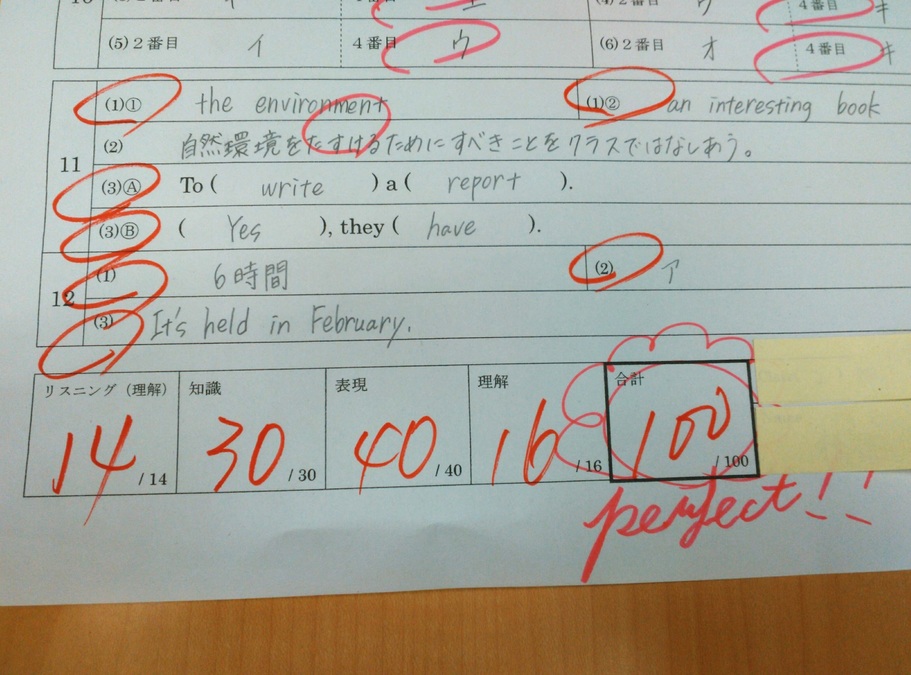 (5) 2番目 イ 4番目 ウ (6) 2番目 オ 4番目 キ
11
(1)① the environment (1)② an interesting book
(2) 自然環境をたすけるためにすべきことをクラスではなしあう。
(3)Ⓐ To ( write ) a ( report ).
(3)Ⓑ ( Yes ), they ( have ).
12
(1) 6時間 (2) ア
(3) It's held in February.
リスニング（理解） 知識 表現 理解 合計
14 /14 30 /30 40 /40 16 /16 100 /100
perfect!!